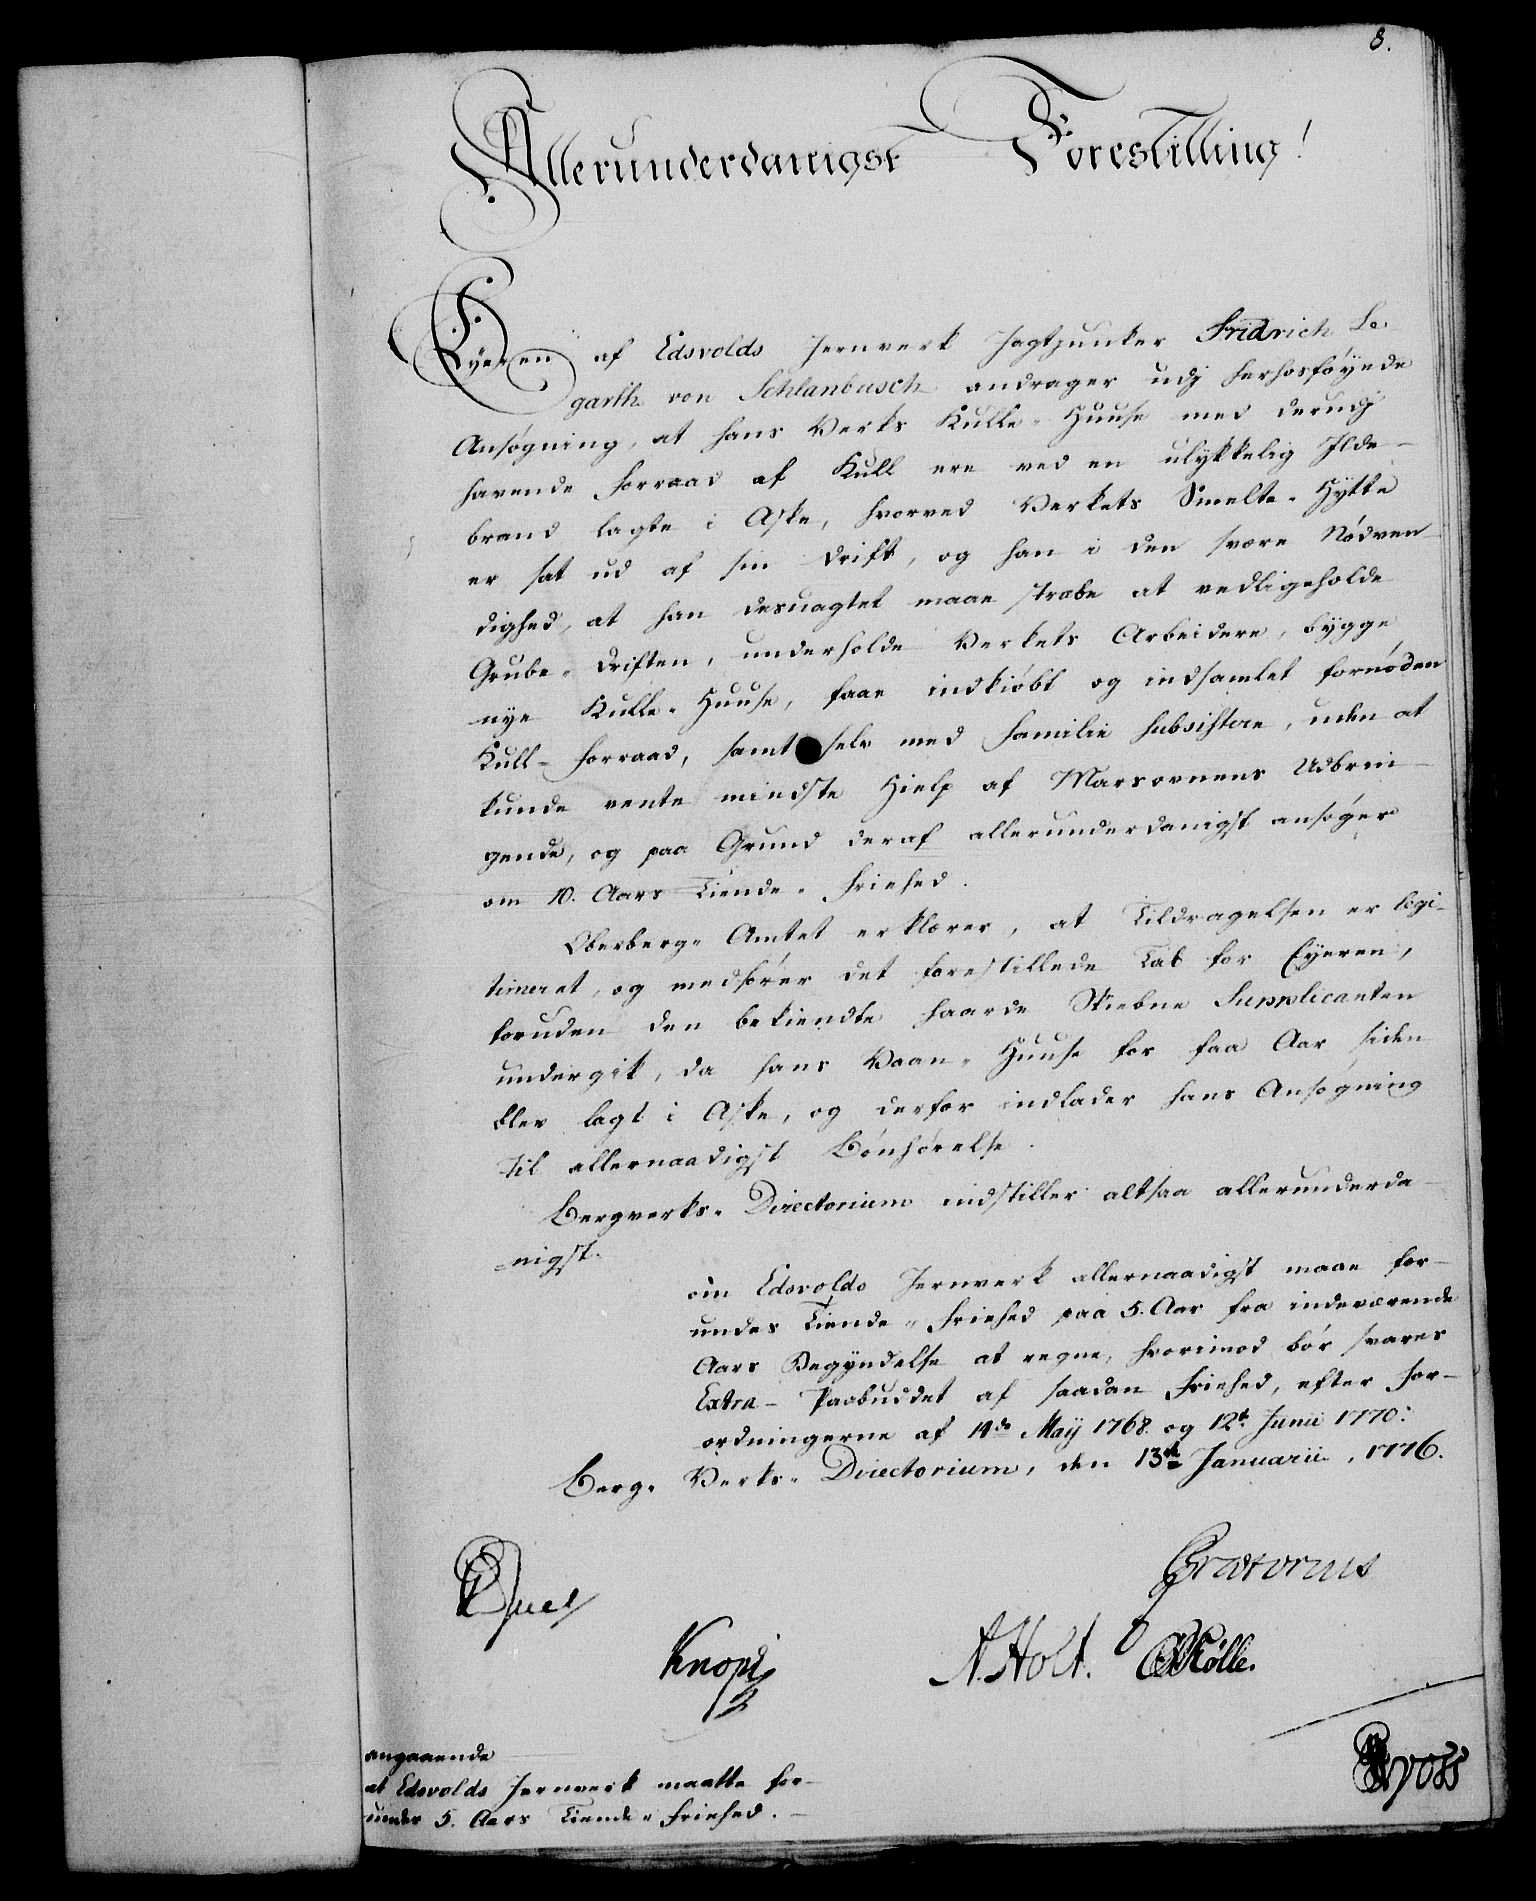 8.
Allerunderdanigst Forestilling!
Eyeren af Edsvolds Jernverk Jagtjunker Fridrich Le-
garth von Schlanbusch andrager udj herhosføyede
Ansøgning, at hans Verks Kulle-Huuse med derudj
havende Forraad af Kull ere ved en ulykkelig Ilde-
brand lagte i Aske, hvorved Verkets Smelte-Hytte
er sat ud af sin Drift, og han i den svære Nødven-
dighed, at han desuagtet maae stræbe at vedligeholde
Grube-Driften, underholde Verkets Arbeidere, bygge
nye Kulle-Huuse, faae indkiøbt og indsamlet fornøden
Kull-Forraad, samt selv med Familie subsistere, uden at
kunde vente mindste Hielp af Marsovnens Udbrin-
gende, og paa Grund deraf allerunderdanigst ansøger
om 10. Aars Tiende-Friehed.
Oberberg-Amtet erklærer, at Tildragelsen er legi-
timeret, og medfører det forestillede Tab for Eyeren,
foruden den bekiendte haarde Skiebne Supplicanten
undergik, da hans Vaan-Huuse for faa Aar siden
blev lagt i Aske, og derfor indlader hans Ansøgning
til allernaadigst Bønhørelse.
Bergverks-Directorium indstiller altsaa allerunderda-
nigst.
om Edsvolds Jernverk allernaadigst maae for-
undes Tiende-Friehed paa 5. Aar fra indeværende
Aars Begyndelse at regne, hvorimod bør svares
Extra-Paabuddet af saadan Friehed, efter For-
ordningerne af 14de May 1768. og 12te Junii 1770.
Berg-Verks-Directorium, den 13de Januarii, 1776.
Juel
Prætorius
Knopf
A. Holt.
Kølle.
angaaende
at Edsvolds Jernverk maatte for-
undes 5. Aars Tiende-Friehed.